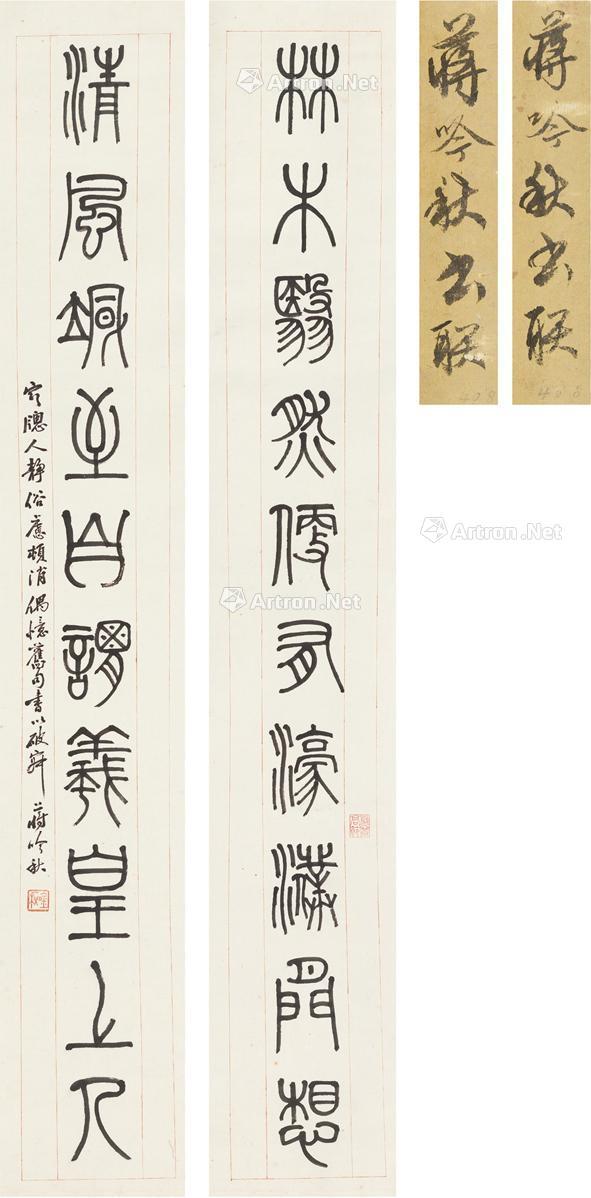 林木翳然便有濠濮間想
清風颯至自謂羲皇上人
牕人静俗慮頓消偶憶舊句書以破寂 蔣吟秋
蔣吟秋书联
408
蔣吟秋书联
408
Artron.Net
Artron.Net
Artron.Net
Artron.Net